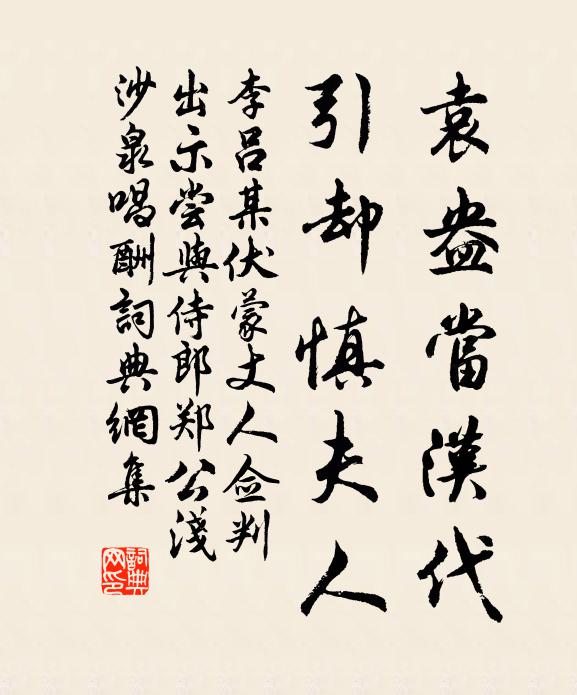 袁盎當漢代
引却慎夫人
李呂某伏蒙丈人佥判
出示尝與侍郎郑公淺
沙泉唱酬詞典網集
詞典网